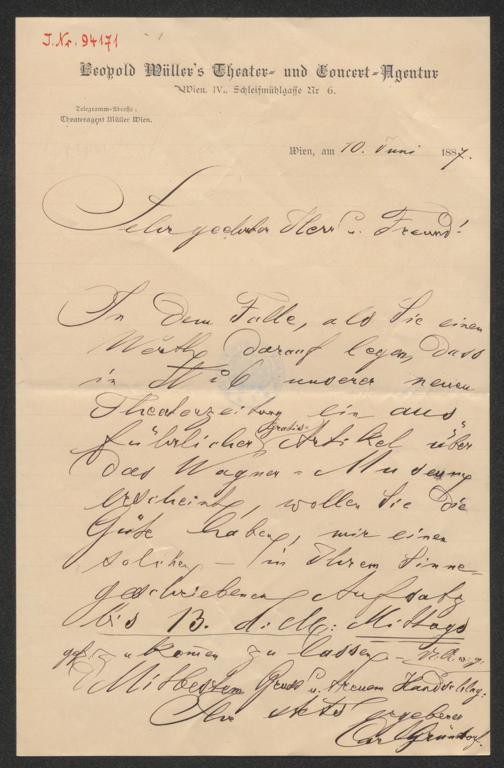 J. Nr. 94171
Leopold Müller's Theater- und Concert-Agentur
Wien, IV., Schleifmühlgasse Nr 6.
Telegramm-Adresse:
Theateragent Müller Wien.
Wien, am 10. Juni 1887.
Sehr geehrter Herr u. Freund!
In dem Falle, als Sie einen
Werth darauf legen, dass
in No 6 unserer neuen
Theaterzeitung ein aus
führlicher Gratis- Artikel über
das Wagner-Museum
erscheint, wollen Sie die
Güte haben, mir einen
solchen – in Ihrem Sinne –
geschriebenen Aufsatz
bis 13. d. M. Mittags
gef. zukomen zu lassen –
Mit bestem Gruß u. treuem Handschlag:
Ihr stets ergebener
Carl Gründorf.